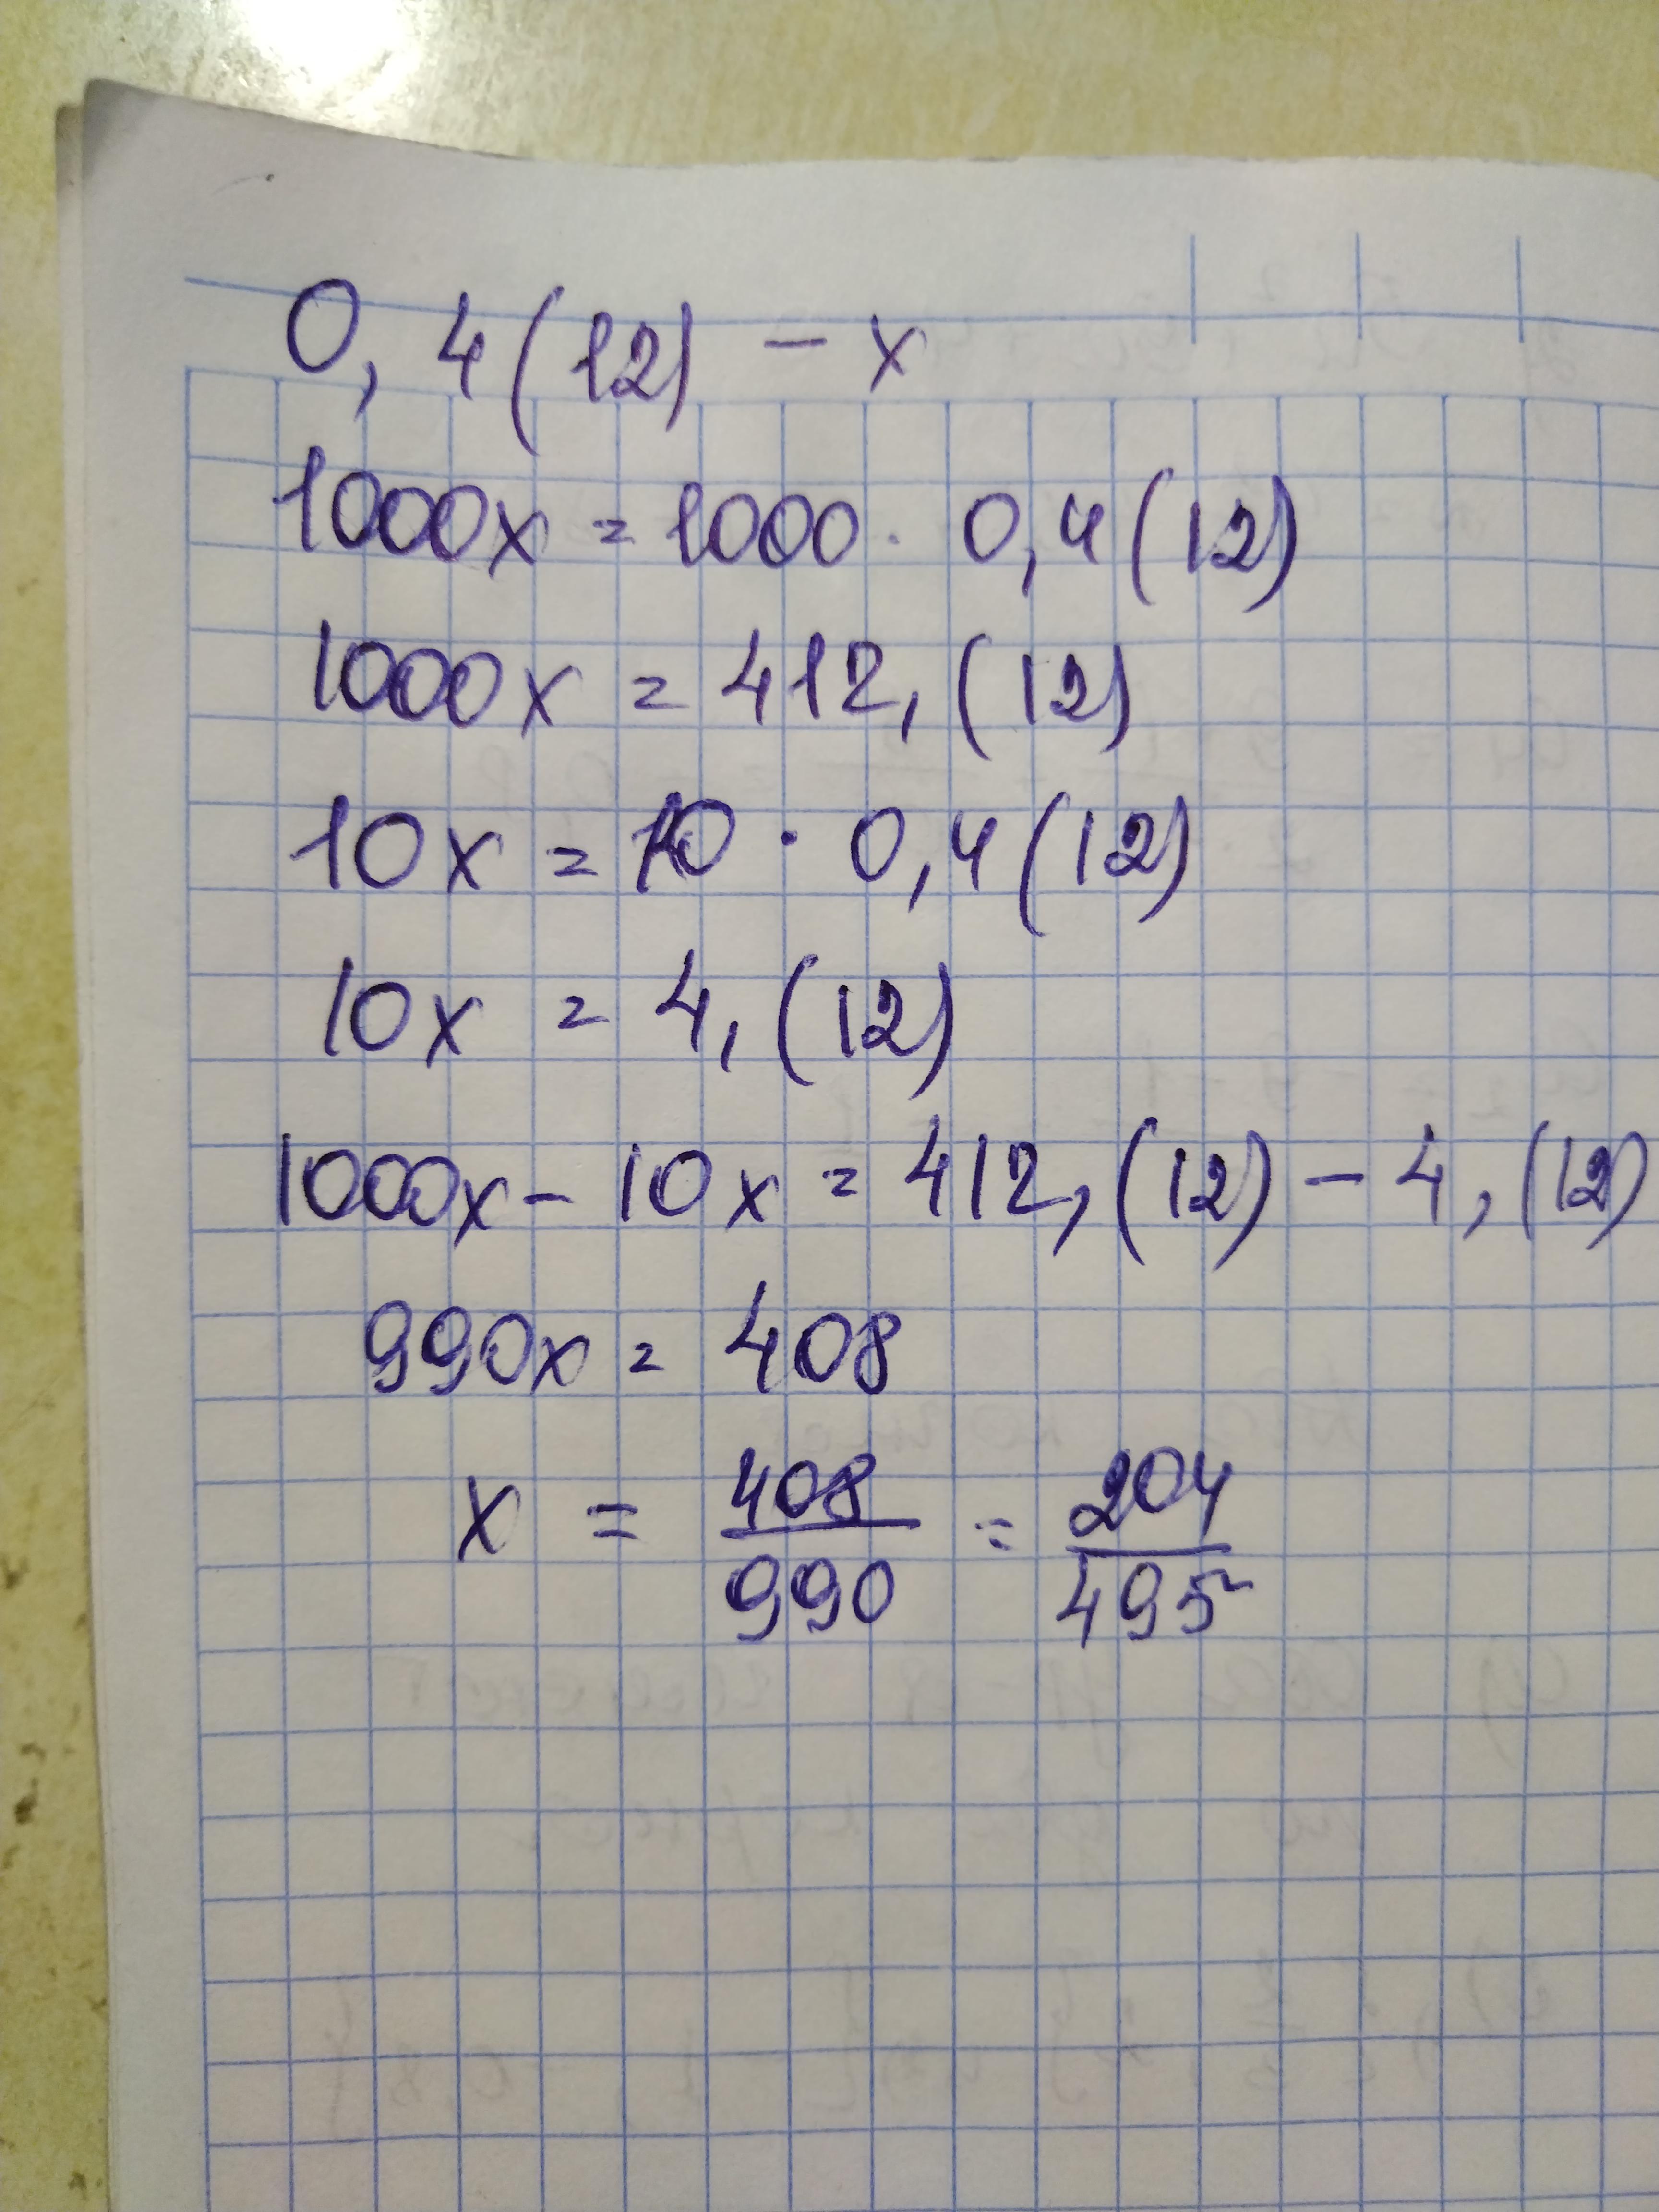 0,4(12) - x
1000x = 1000 · 0,4(12)
1000x = 412,(12)
10x = 10 · 0,4(12)
10x = 4,(12)
1000x - 10x = 412,(12) - 4,(12)
990x = 408
x = 408/990 = 204/495